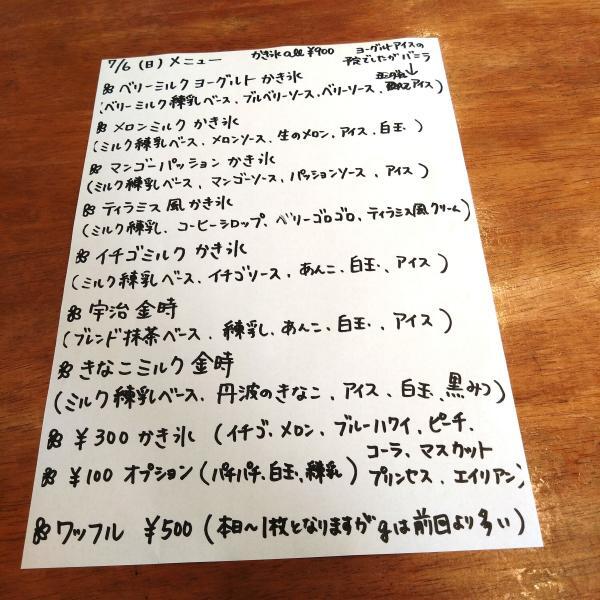 7/6 (日) メニュー
かき氷 all ¥900
ヨーグルトアイスの
予定でしたがバニラ
ベリーミルクヨーグルト かき氷
(ベリーミルク練乳ベース、ブルベリーソース、ベリーソース、アイス)
メロンミルク かき氷
(ミルク練乳ベース、メロンソース、生のメロン、アイス、白玉、)
マンゴーパッション かき氷
(ミルク練乳ベース、マンゴーソース、パッションソース、アイス)
ティラミス風かき氷
(ミルク練乳、コーヒーシロップ、ベリーゴロゴロ、ティラミス風クリーム)
イチゴミルク かき氷
(ミルク練乳ベース、イチゴソース、あんこ、白玉、アイス)
宇治金時
(ブレンド抹茶ベース、練乳、あんこ、白玉、、アイス)
きなこミルク金時
(ミルク練乳ベース、丹波のきなこ、アイス、白玉、黒みつ)
¥300 かき氷 (イチゴ、メロン、ブルーハワイ、ピーチ、
コーラ、マスカット
プリンセス、エイリアン)
¥100 オプション (パチパチ、白玉、練乳)
ワッフル ¥500 (本日〜1枚となりますがgは前回より多い)